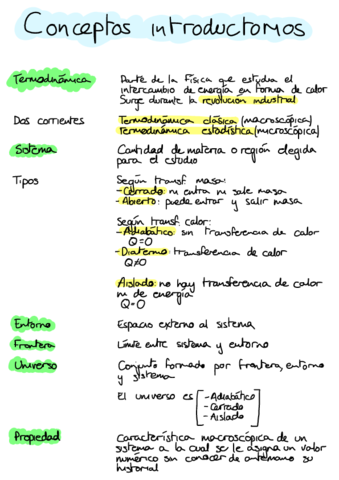 Conceptos introductorios
Termodinámica
Parte de la física que estudia el
intercambio de energía en forma de calor
Surge durante la revolución industrial
Dos corrientes
Termodinámica clásica (macroscópica)
Termodinámica estadística (microscópica)
Sistema
Cantidad de materia o región elegida
para el estudio
Tipos
Según transf. masa:
-Cerrado: ni entra ni sale masa
-Abierto: puede entrar y salir masa
Según transf. calor:
-Adiabático: sin transferencia de calor
Q=0
-Diatermo: transferencia de calor
Q≠0
Aislado: no hay transferencia de calor
ni de energía
Q=0
Entorno
Espacio externo al sistema
Frontera
Límite entre sistema y entorno
Universo
Conjunto formado por frontera, entorno
y sistema
El universo es
-Adiabático
-Cerrado
-Aislado
Propiedad
Característica macroscópica de un
sistema a la cual se le asigna un valor
numérico sin conocer de antemano su
historial